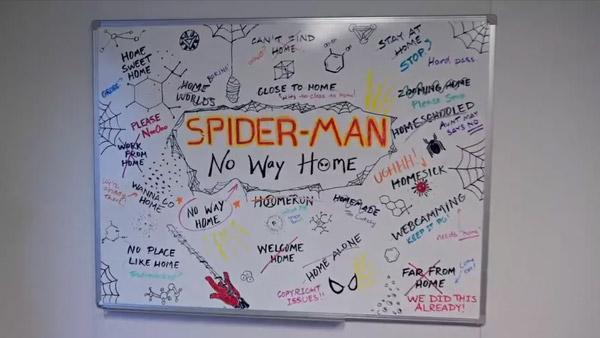 CAN'T FIND
HOME
STAY AT
HOME
STOP?
HOME
SWEET
HOME
Hard pass.
HOME
WORLDS
CLOSE TO HOME
Please Stop
PLEASE
HOMESCHOOLED
AUNT MAY
SAYS NO
SPIDER-MAN
No Way Home
WORK
FROM
HOME
UGHHH!
HOMESICK
WANNA GO
HOME
NO WAY
HOME
HOMERUN
HOMEMADE
WEBCAMMING
KEEP IT PG!
needs "home"
NO PLACE
LIKE HOME
WELCOME
HOME
HOME ALONE
COPYRIGHT
ISSUES!!
FAR FROM
HOME
WE DID THIS
ALREADY!